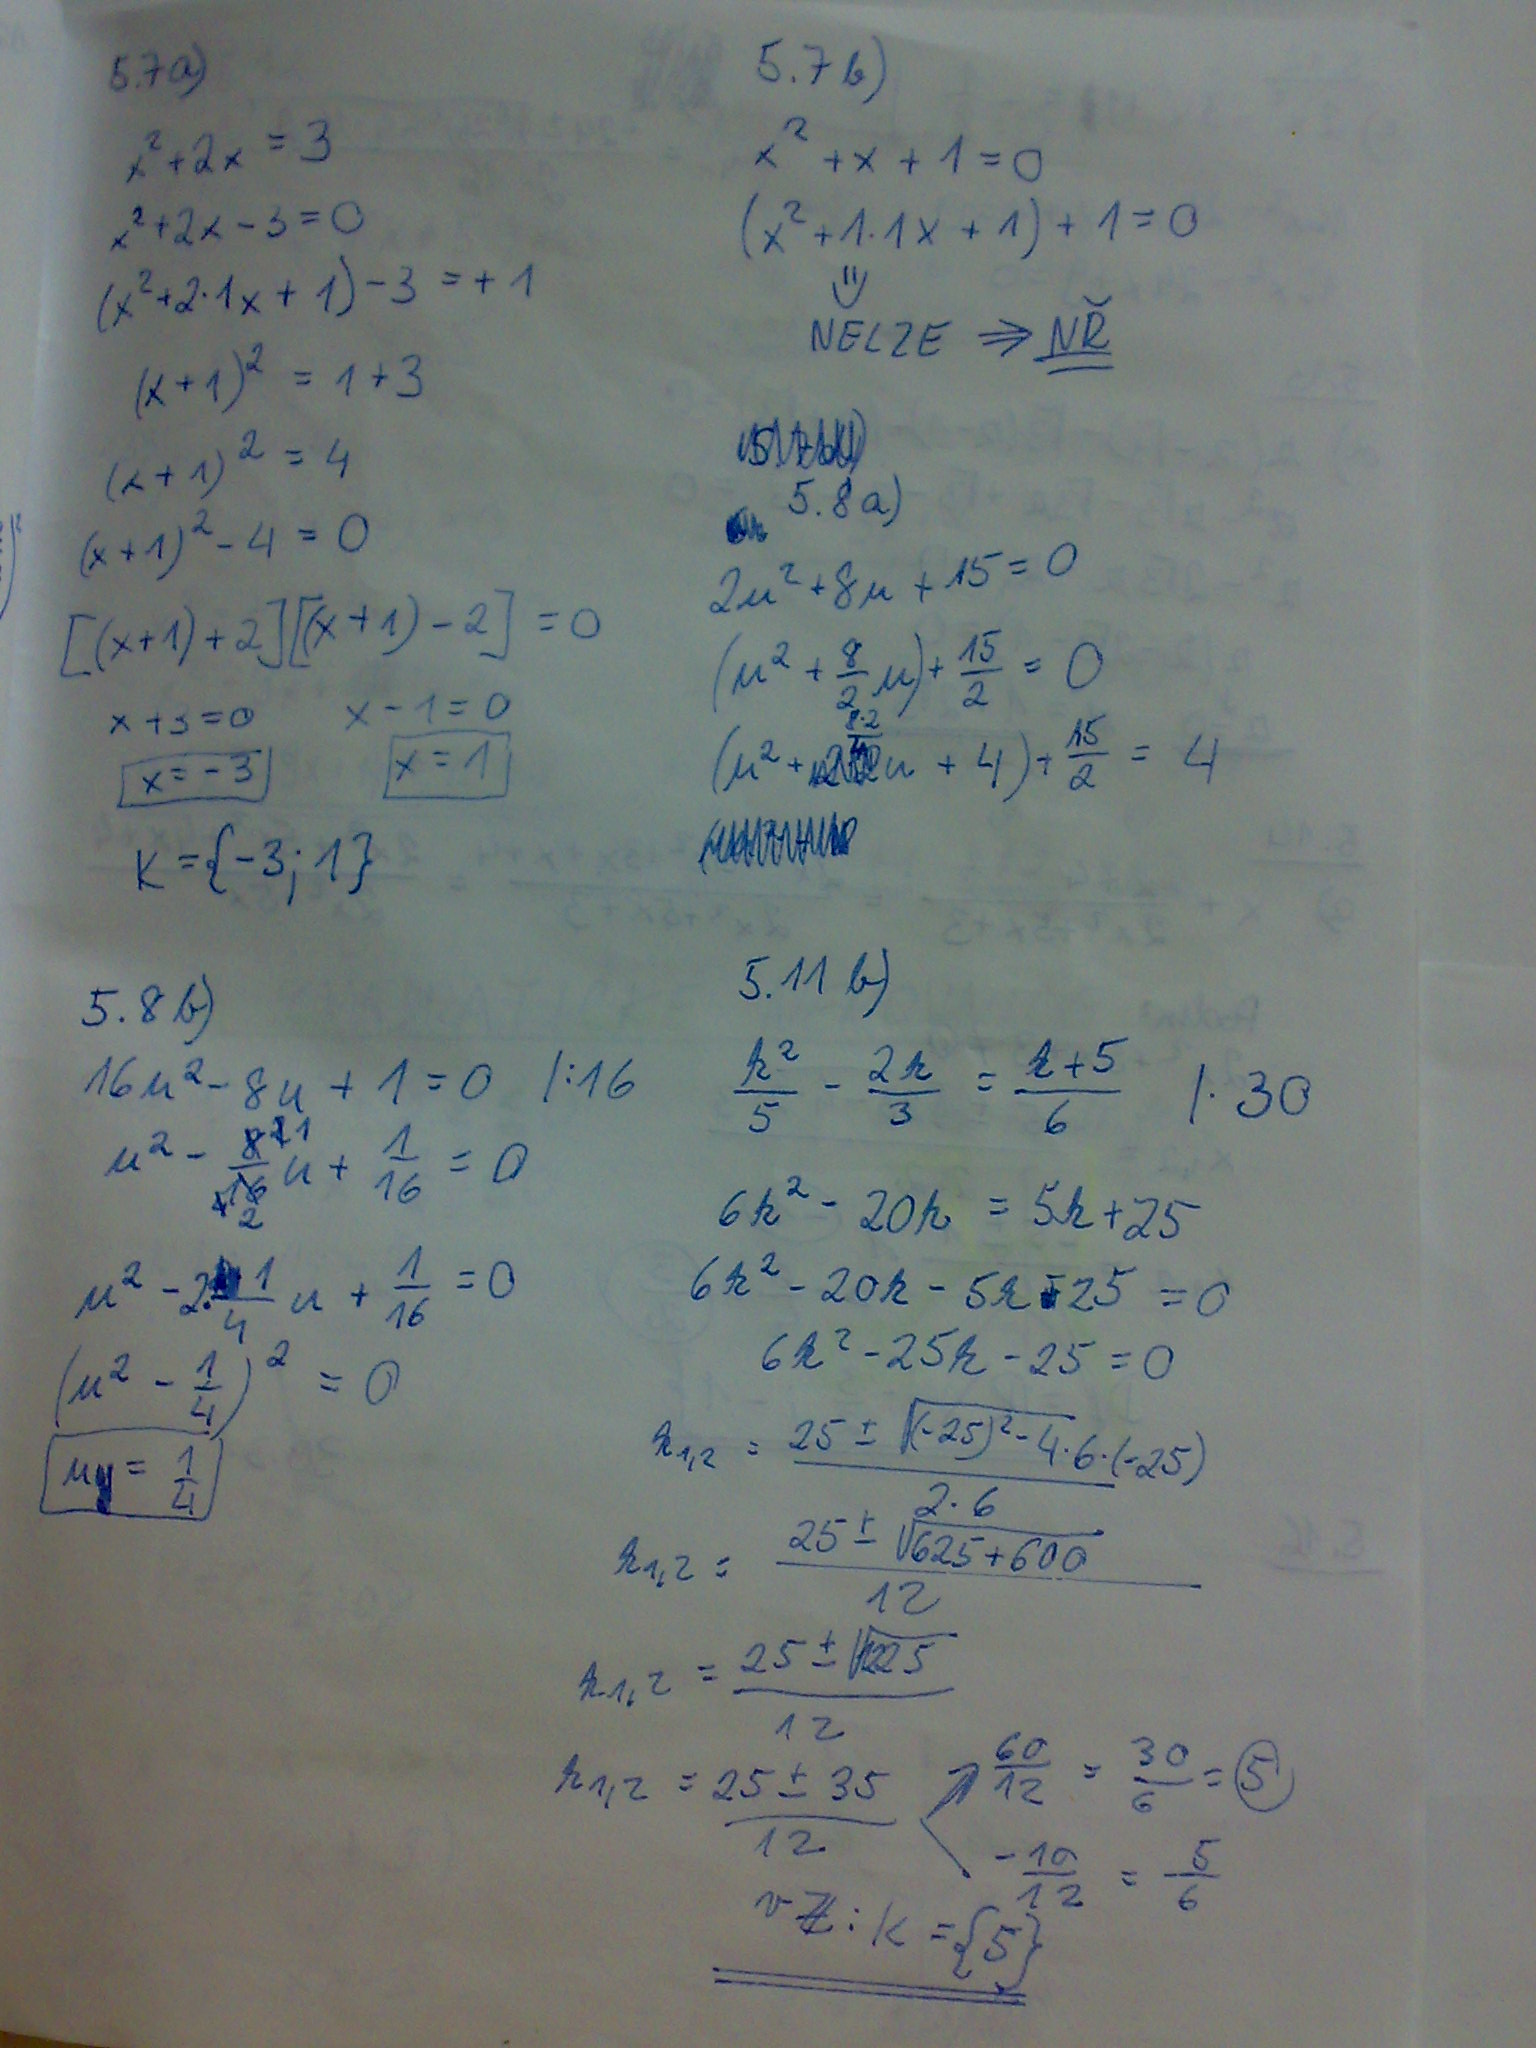 5.7a)
x² + 2x = 3
x² + 2x - 3 = 0
(x² + 2·1x + 1) - 3 = + 1
(x + 1)² = 1 + 3
(x + 1)² = 4
(x + 1)² - 4 = 0
[(x+1) + 2][(x+1) - 2] = 0
x + 3 = 0   x - 1 = 0
x = -3   x = 1
K = {-3; 1}
5.7b)
x² + x + 1 = 0
(x² + 1·1x + 1) + 1 = 0
NELZE ⇒ NŘ
5.8a)
2u² + 8u + 15 = 0
(u² + 8/2 u) + 15/2 = 0
(u² + 8·2/4 u + 4) + 15/2 = 4
5.8b)
16u² - 8u + 1 = 0 /:16
u² - 8/16 u + 1/16 = 0
u² - 2·1/4 u + 1/16 = 0
(u² - 1/4)² = 0
u = 1/4
5.11b)
k²/5 - 2k/3 = k+5/6 /· 30
6k² - 20k = 5k + 25
6k² - 20k - 5k - 25 = 0
6k² - 25k - 25 = 0
k1,2 = 25 ± √(-25)² - 4·6·(-25) / 2·6
k1,2 = 25 ± √625+600 / 12
k1,2 = 25 ± √1225 / 12
k1,2 = 25 ± 35 / 12   60/12 = 30/6 = 5
-10/12 = -5/6
v Z: K = {5}